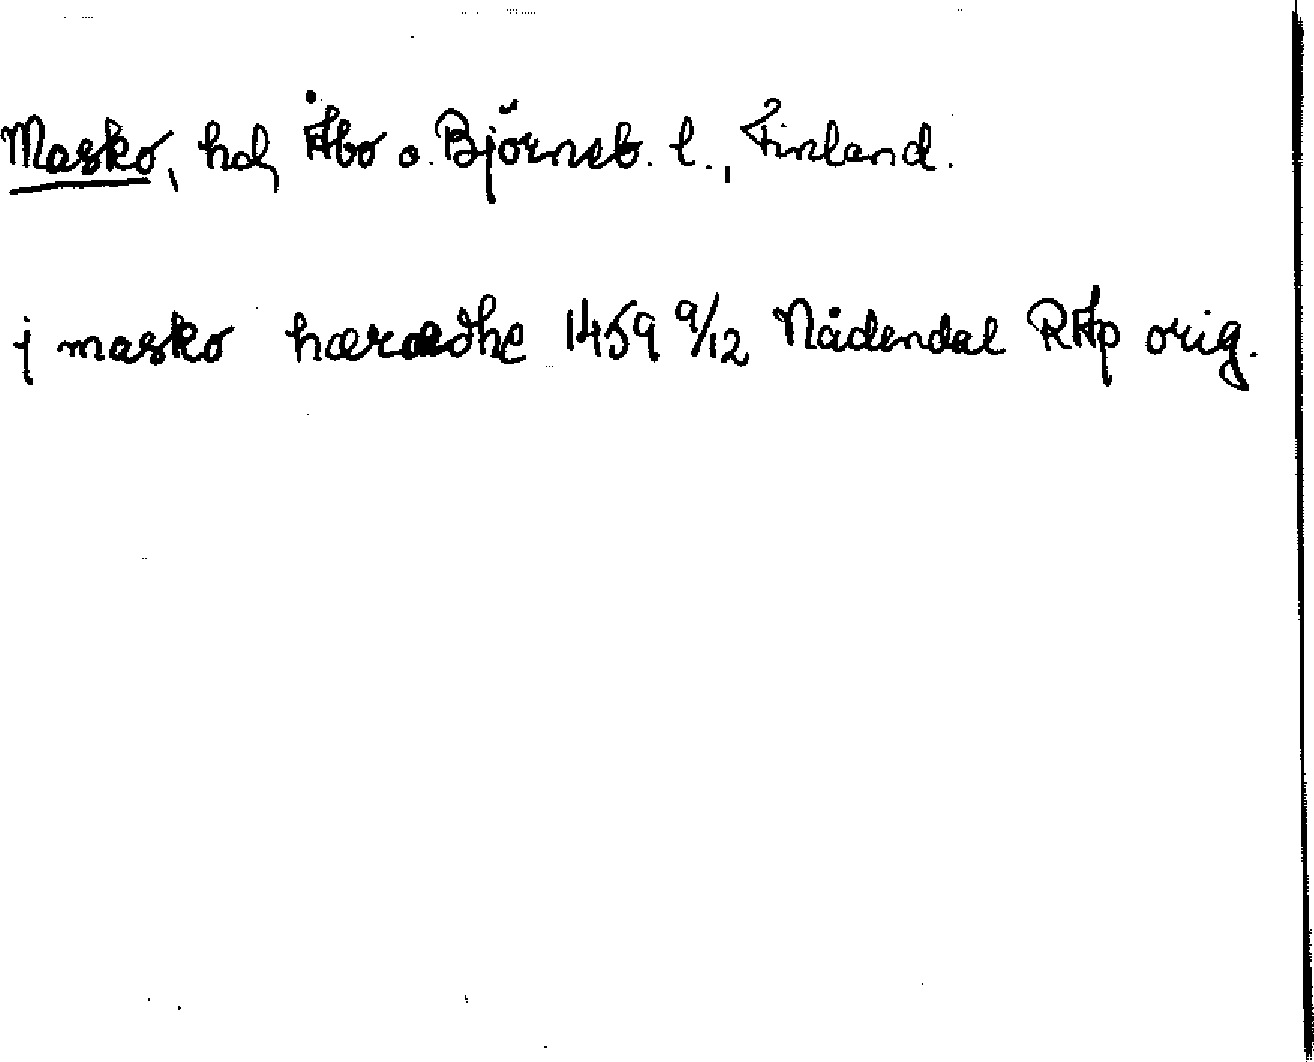 Masko, hd, Åbo o. Björneb. l., Finland.
j masko hæradhe 1459 9/12 Nådendal RAp orig.